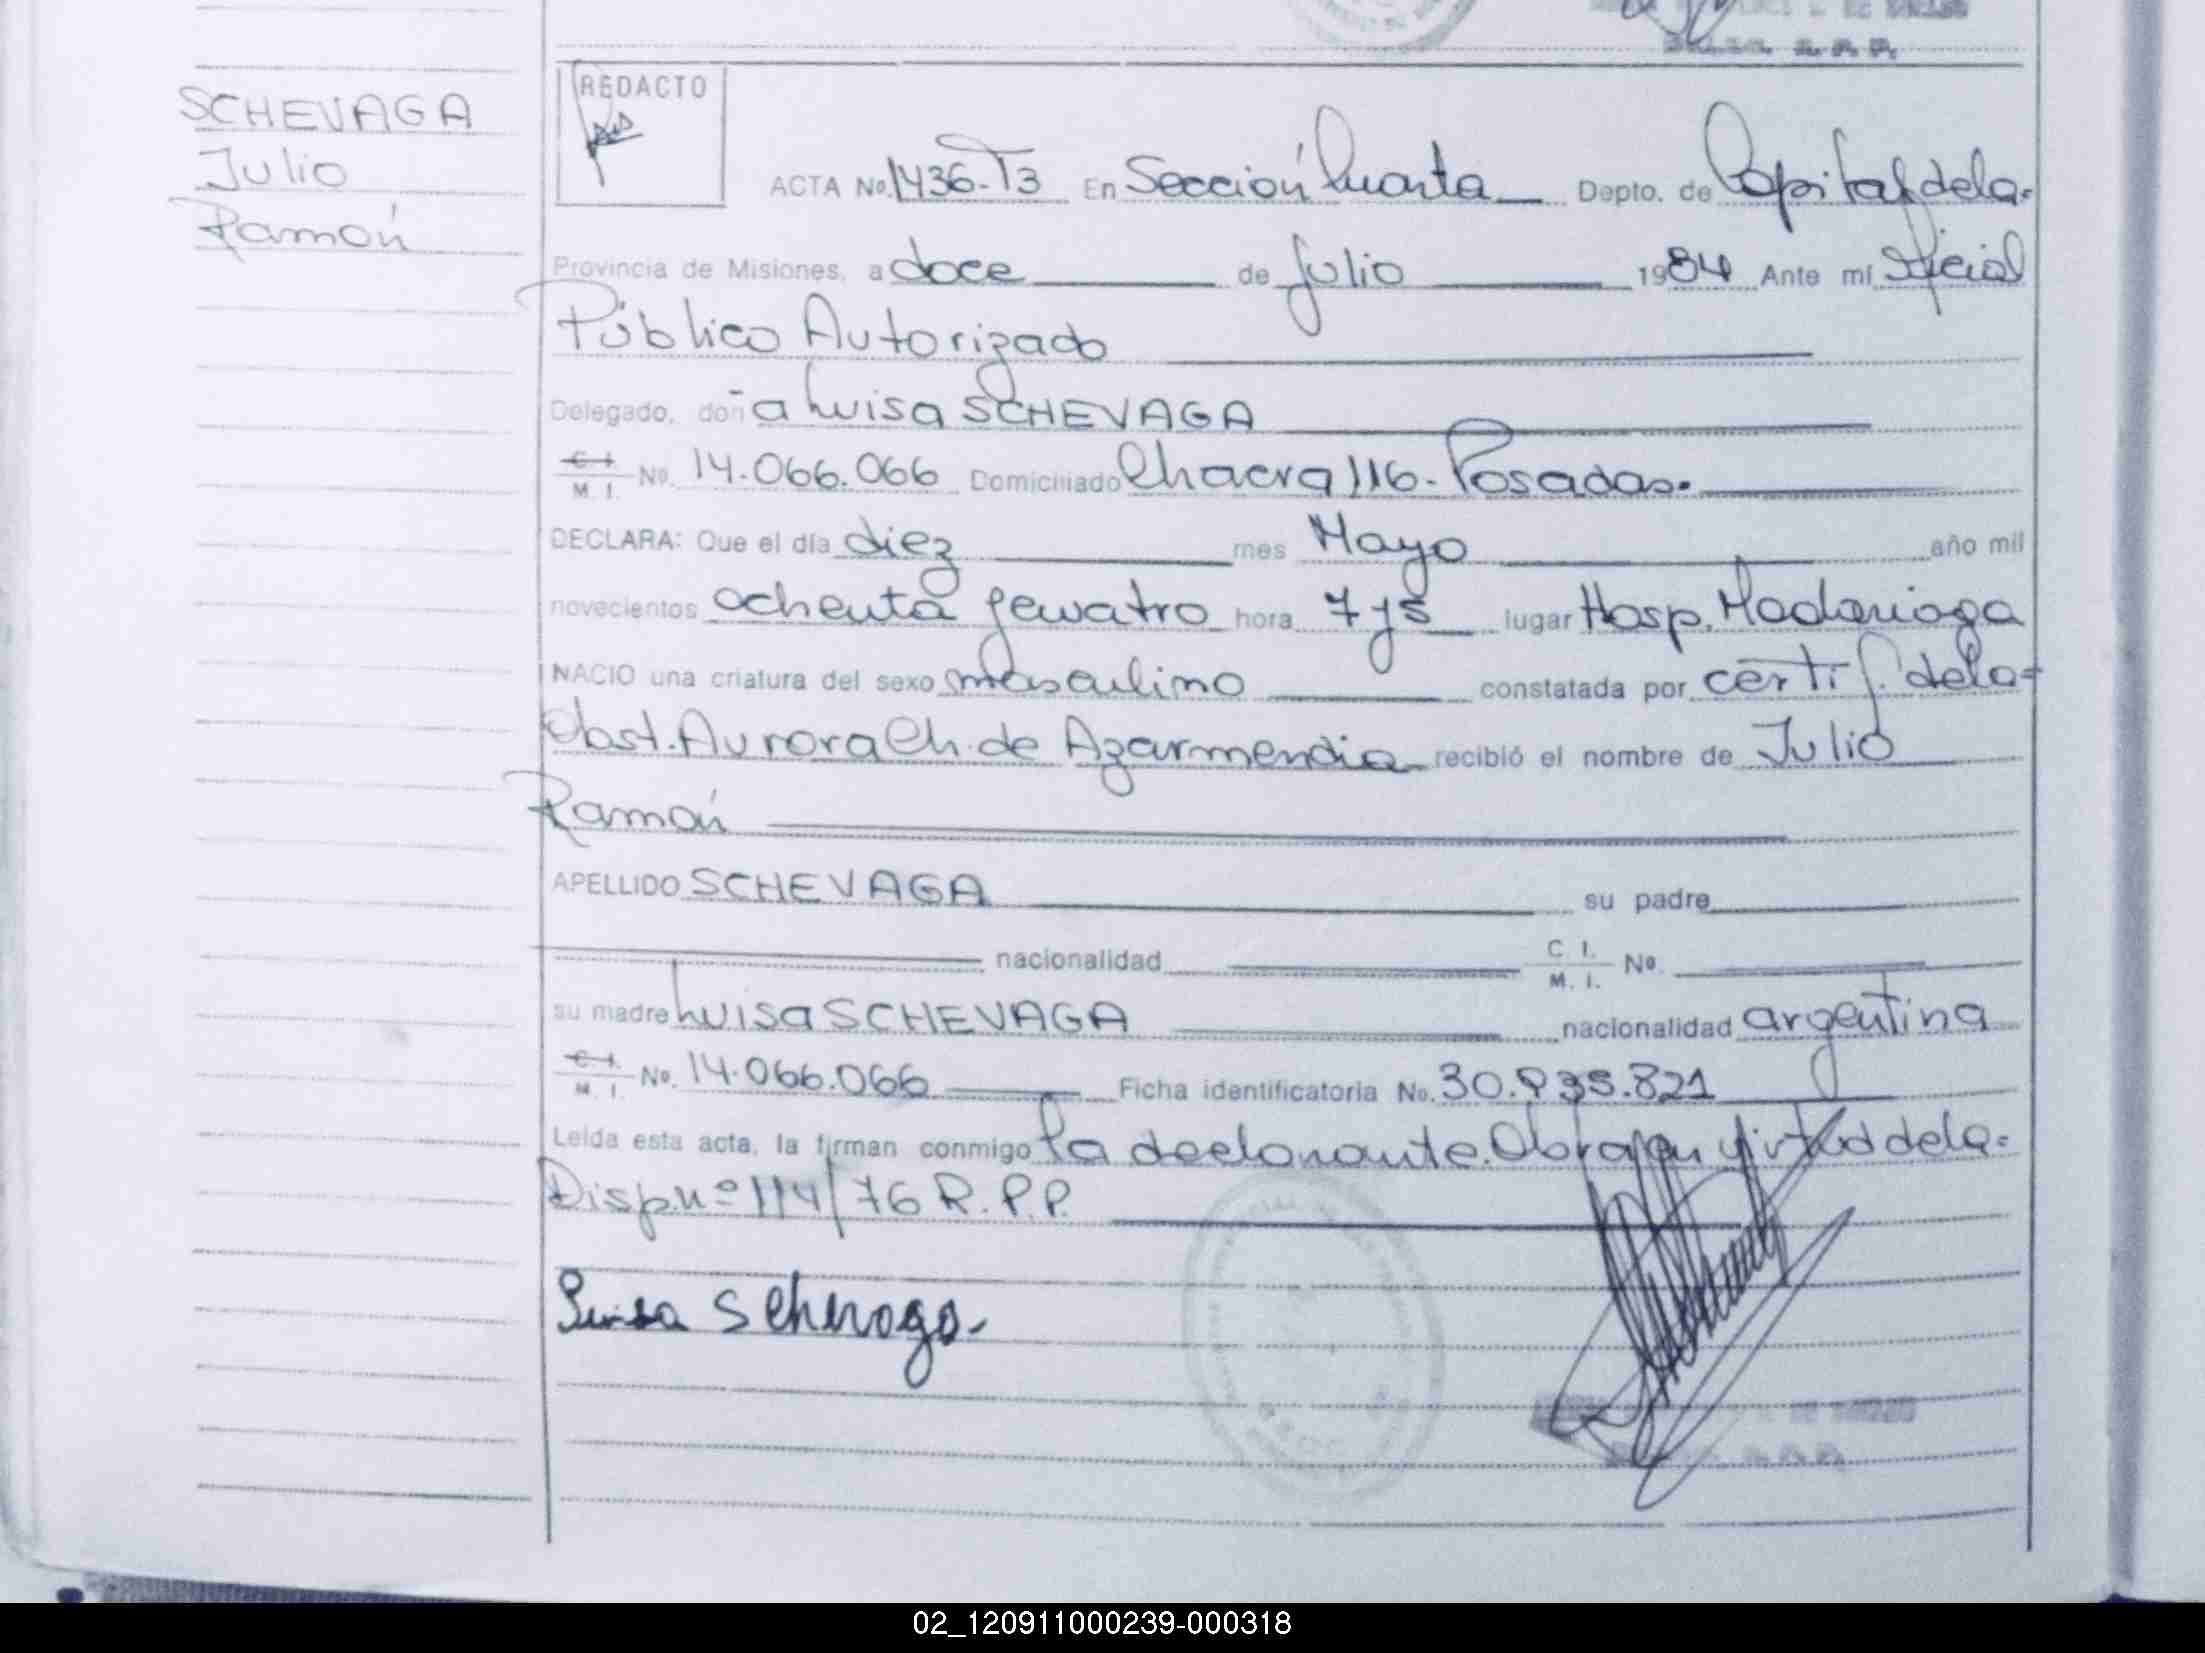 SCHEVAGA
Julio
Ramón
REDACTO
ACTA No. 1436-T3 En Sección Cuarta Depto. de Capital de la-
Provincia de Misiones, a doce de Julio 1984 Ante mí Oficial
Público Autorizado
Delegado, doña Luisa SCHEVAGA
C.I. M.I. No. 14.066.066 Domiciliado Chacra 116.- Posadas.
DECLARA: Que el día diez mes Mayo año mil
novecientos ochenta y cuatro hora 7 y 5 lugar Hosp. Madariaga
NACIO una criatura del sexo masculino constatada por certif. de la-
Obst. Aurora Ch. de Azarmendia recibió el nombre de Julio
Ramón
APELLIDO SCHEVAGA su padre
nacionalidad C.I. M.I. No.
su madre Luisa SCHEVAGA nacionalidad argentina
C.I. M.I. No. 14.066.066 Ficha identificatoria No. 30.935.821
Leída esta acta, la firman conmigo la declarante. Obra en virtud de la-
Disp. nº 114/76 R.P.P.
Luisa Schevaga.
02_120911000239-000318